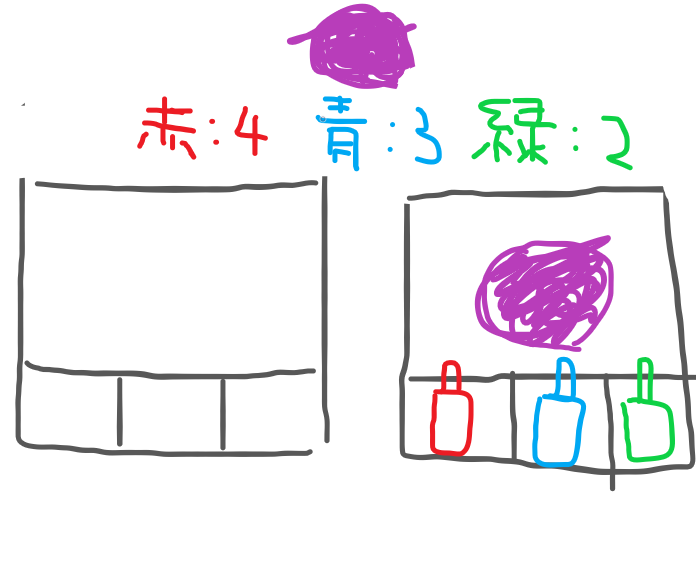 赤:4 青:3 緑:2